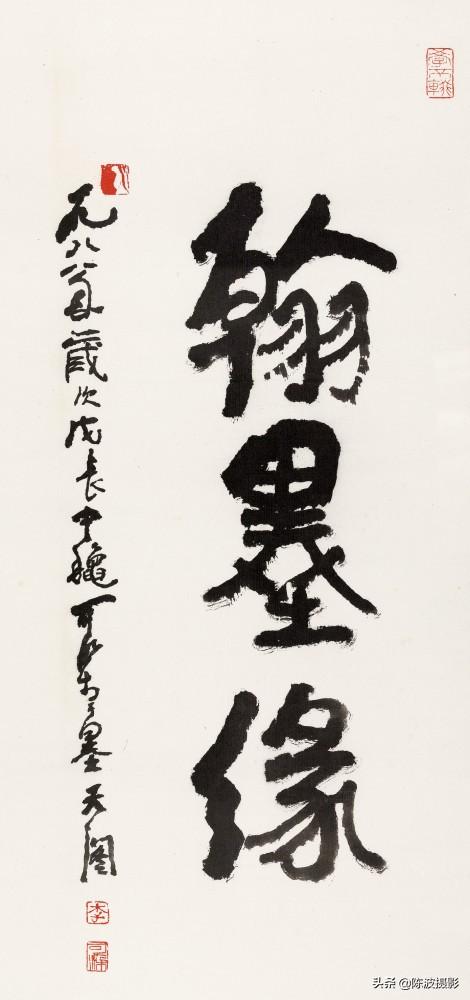 翰墨缘
一九八八年歲次戊辰中龝可染于墨天閣
李
可染
头条 @陈波摄影